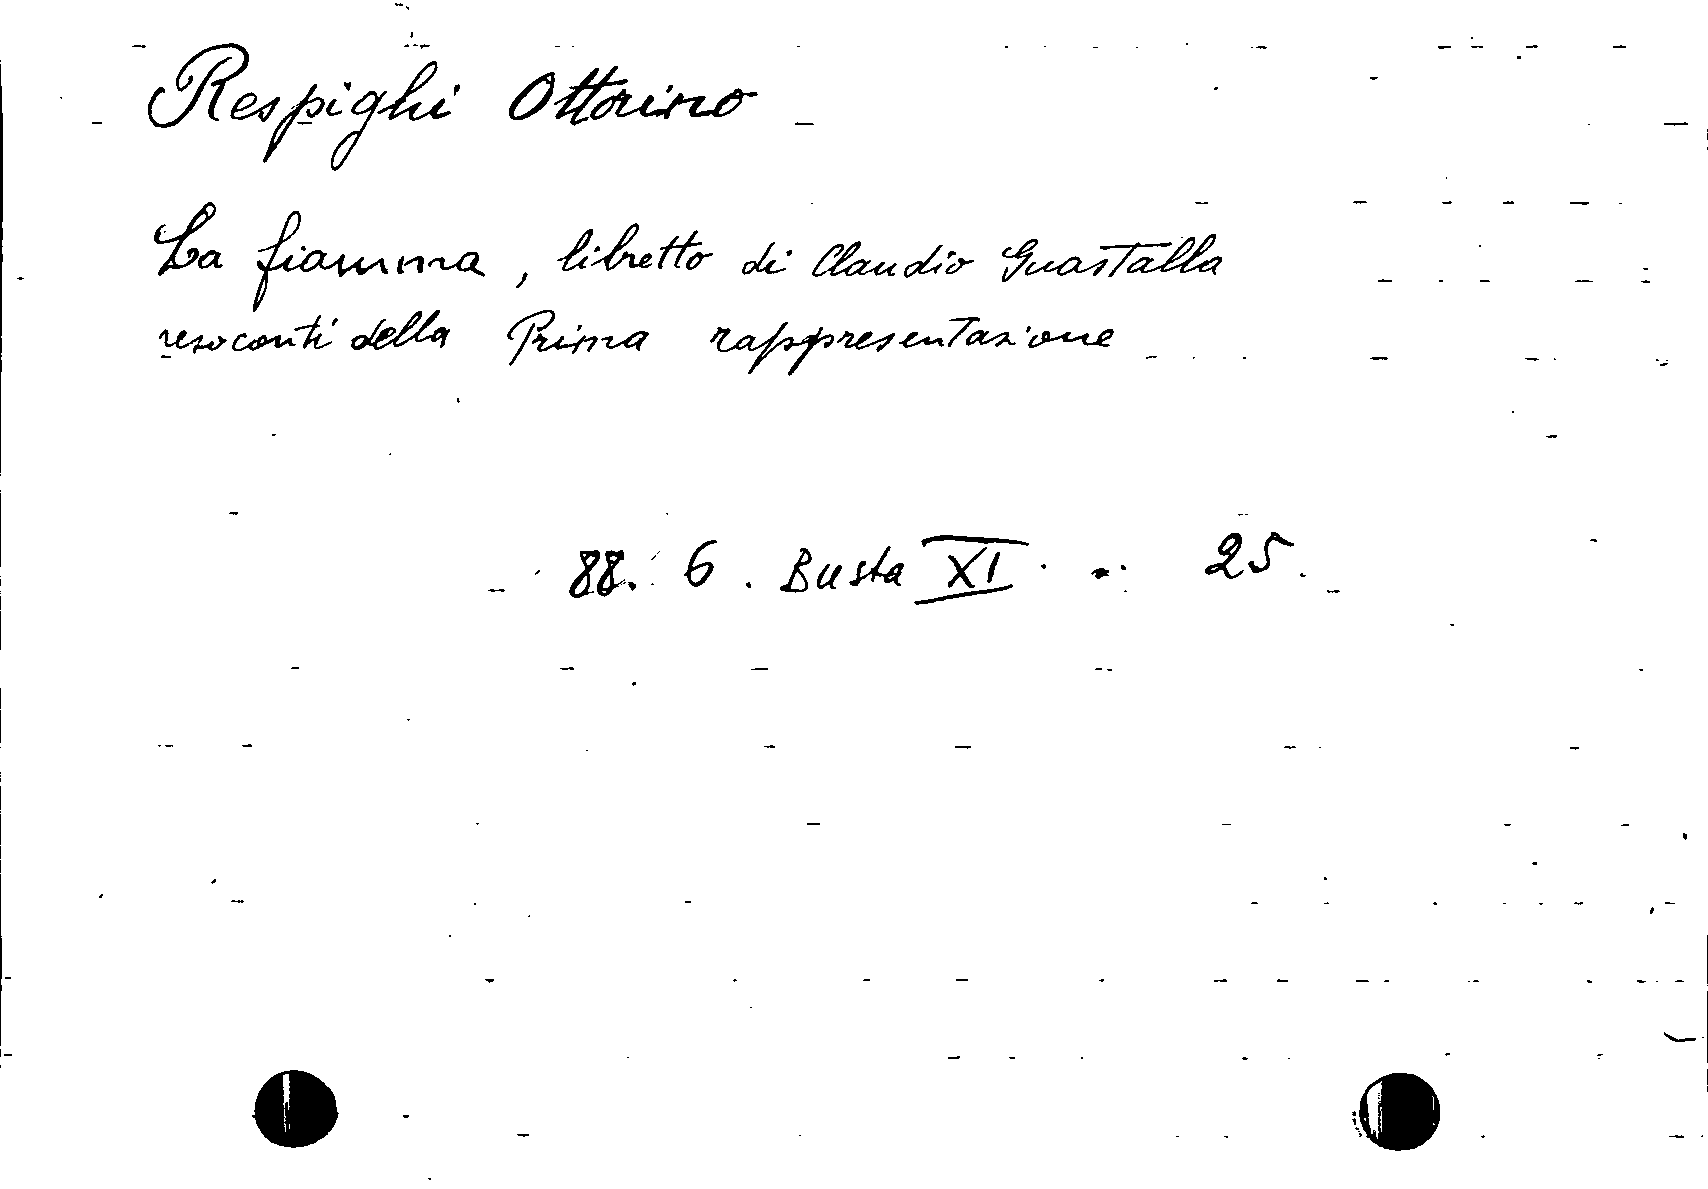 Respighi Ottorino
La fiamma, libretto di Claudio Guastalla
resoconti della Prima rappresentazione
88. 6. Busta XI .. 25.